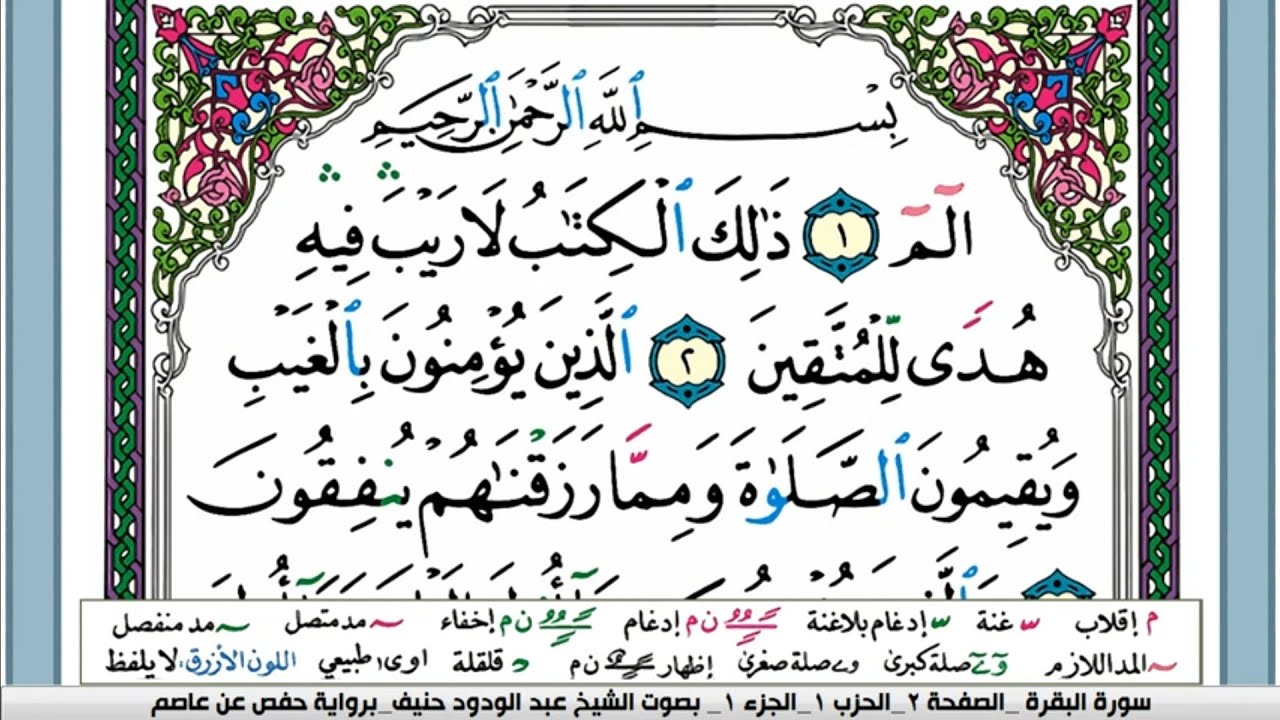 بِسْمِ ٱللَّهِ ٱلرَّحْمَٰنِ ٱلرَّحِيمِ
الٓمٓ ١ ذَٰلِكَ ٱلْكِتَٰبُ لَا رَيْبَ ۛ فِيهِ ۛ
هُدًى لِّلْمُتَّقِينَ ٢ ٱلَّذِينَ يُؤْمِنُونَ بِٱلْغَيْبِ
وَيُقِيمُونَ ٱلصَّلَوٰةَ وَمِمَّا رَزَقْنَٰهُمْ يُنفِقُونَ
م إقلاب ّ غنة ّ إدغام بلاغنة ن م إدغام ن م إخفاء ~ مد متصل ~ مد منفصل
~ المد اللازم وے صلة كبرى وے صلة صغرى إظهار ن م د قلقلة اوى ا طبيعي اللون الأزرق: لا يلفظ
سورة البقرة _الصفحة ٢_الحزب ١_الجزء ١_ بصوت الشيخ عبد الودود حنيف_برواية حفص عن عاصم